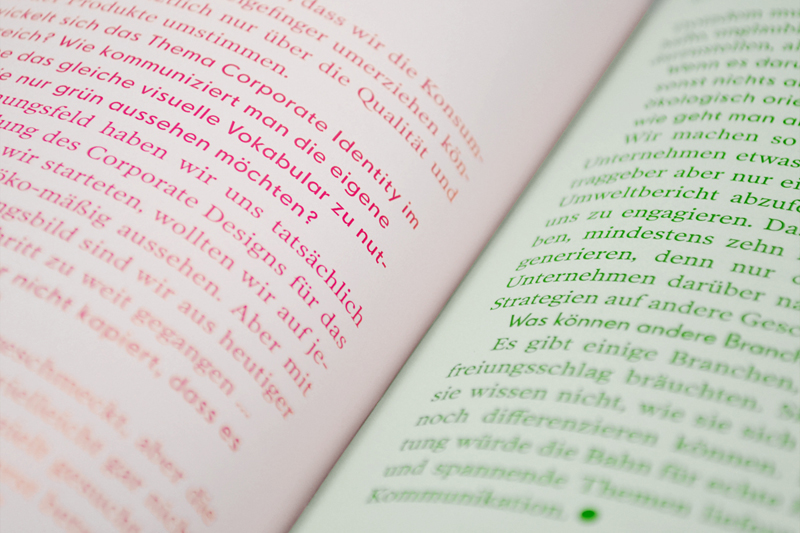 dass wir die Konsum-
gefinger umerziehen kön-
tlich nur über die Qualität und
Produkte umstimmen.
wickelt sich das Thema Corporate Identity im
reich? Wie kommuniziert man die eigene
e das gleiche visuelle Vokabular zu nut-
e nur grün aussehen möchten?
nungsfeld haben wir uns tatsächlich
lung des Corporate Designs für das
wir starteten, wollten wir auf je-
öko-mäßig aussehen. Aber mit
ngsbild sind wir aus heutiger
hritt zu weit gegangen ...
r nicht kapiert, dass es
geschmeckt, aber die
vielleicht gar nicht
sonst nichts a
ökologisch orie
wie geht man a
Wir machen so
Unternehmen etwas
traggeber aber nur ei
Umweltbericht abzufe
uns zu engagieren. Da
ben, mindestens zehn
generieren, denn nur
Unternehmen darüber na
Strategien auf andere Gesc
Was können andere Branch
Es gibt einige Branchen,
freiungsschlag bräuchten. S
sie wissen nicht, wie sie sich
noch differenzieren können.
rung würde die Bahn für echte
und spannende Themen liefer
Kommunikation.